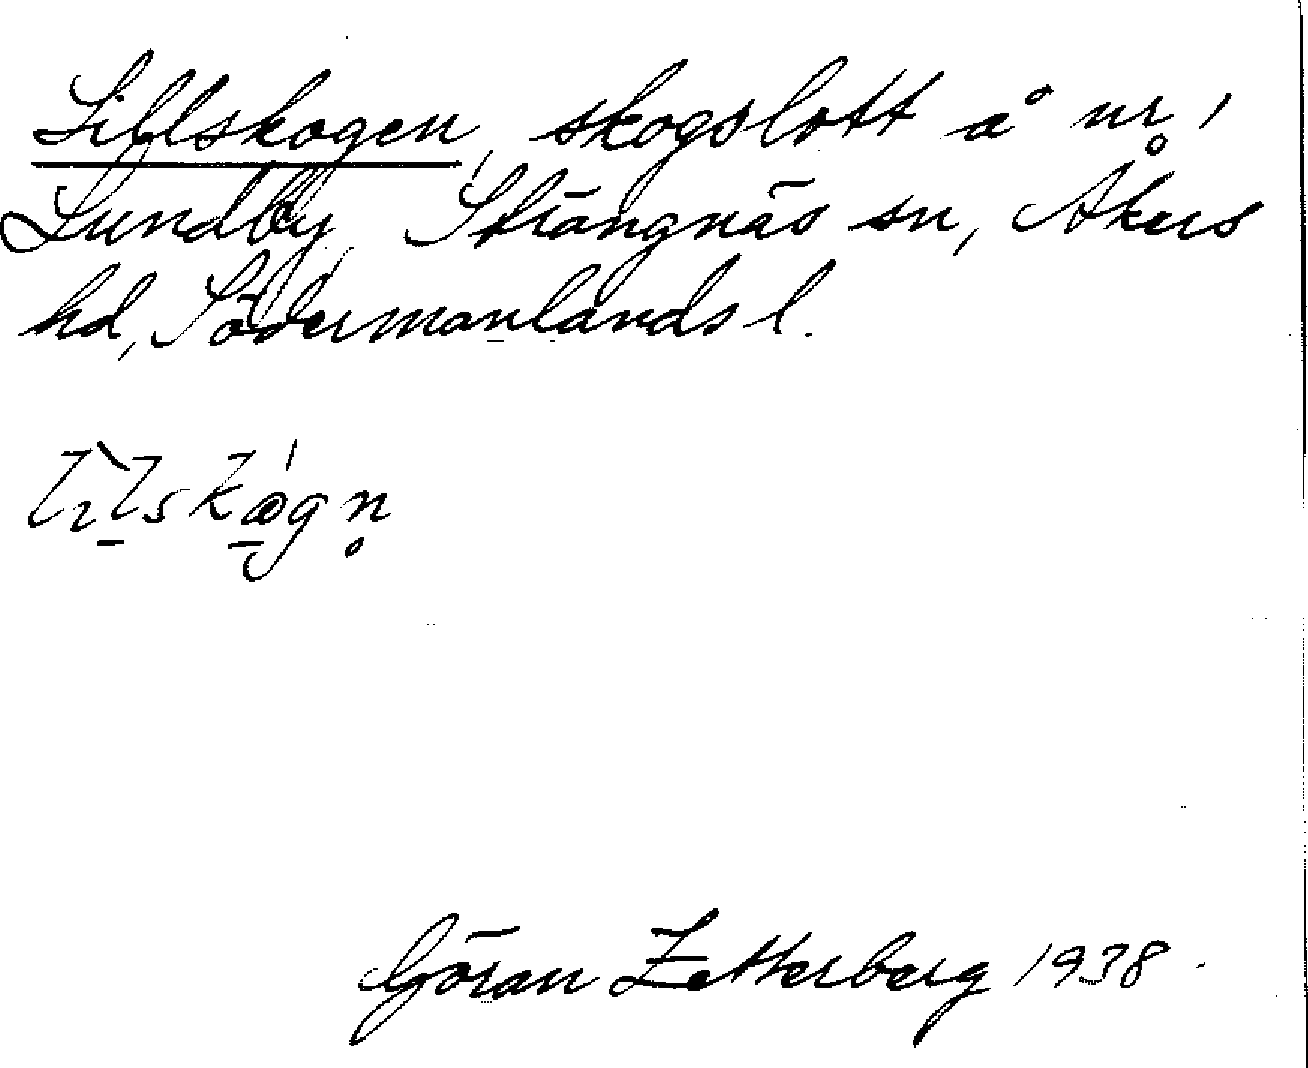 Lillskogen, skogslott å nr 1
Lundby, Strängnäs sn, Åkers
hd, Södermanlands l.
Göran Zetterberg 1938